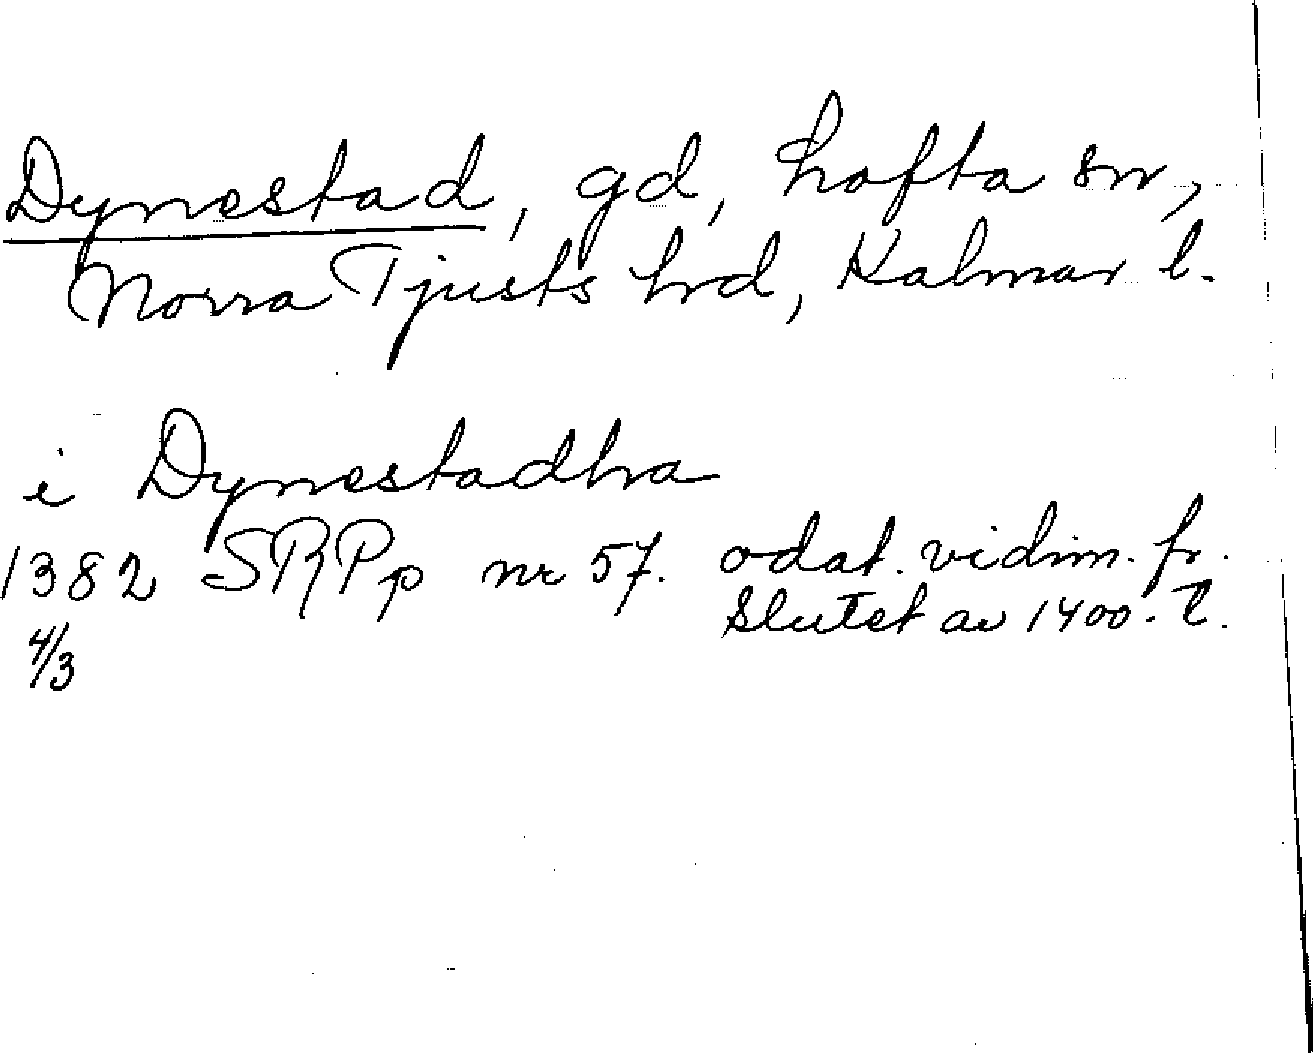 Dynestad, gd, Lofta sn,
Norra Tjusts hrd, Kalmar l.
i Dynestadha
1382 SRPp nr 57. odat. vidim. fr.
slutet av 1400-t.
4/3